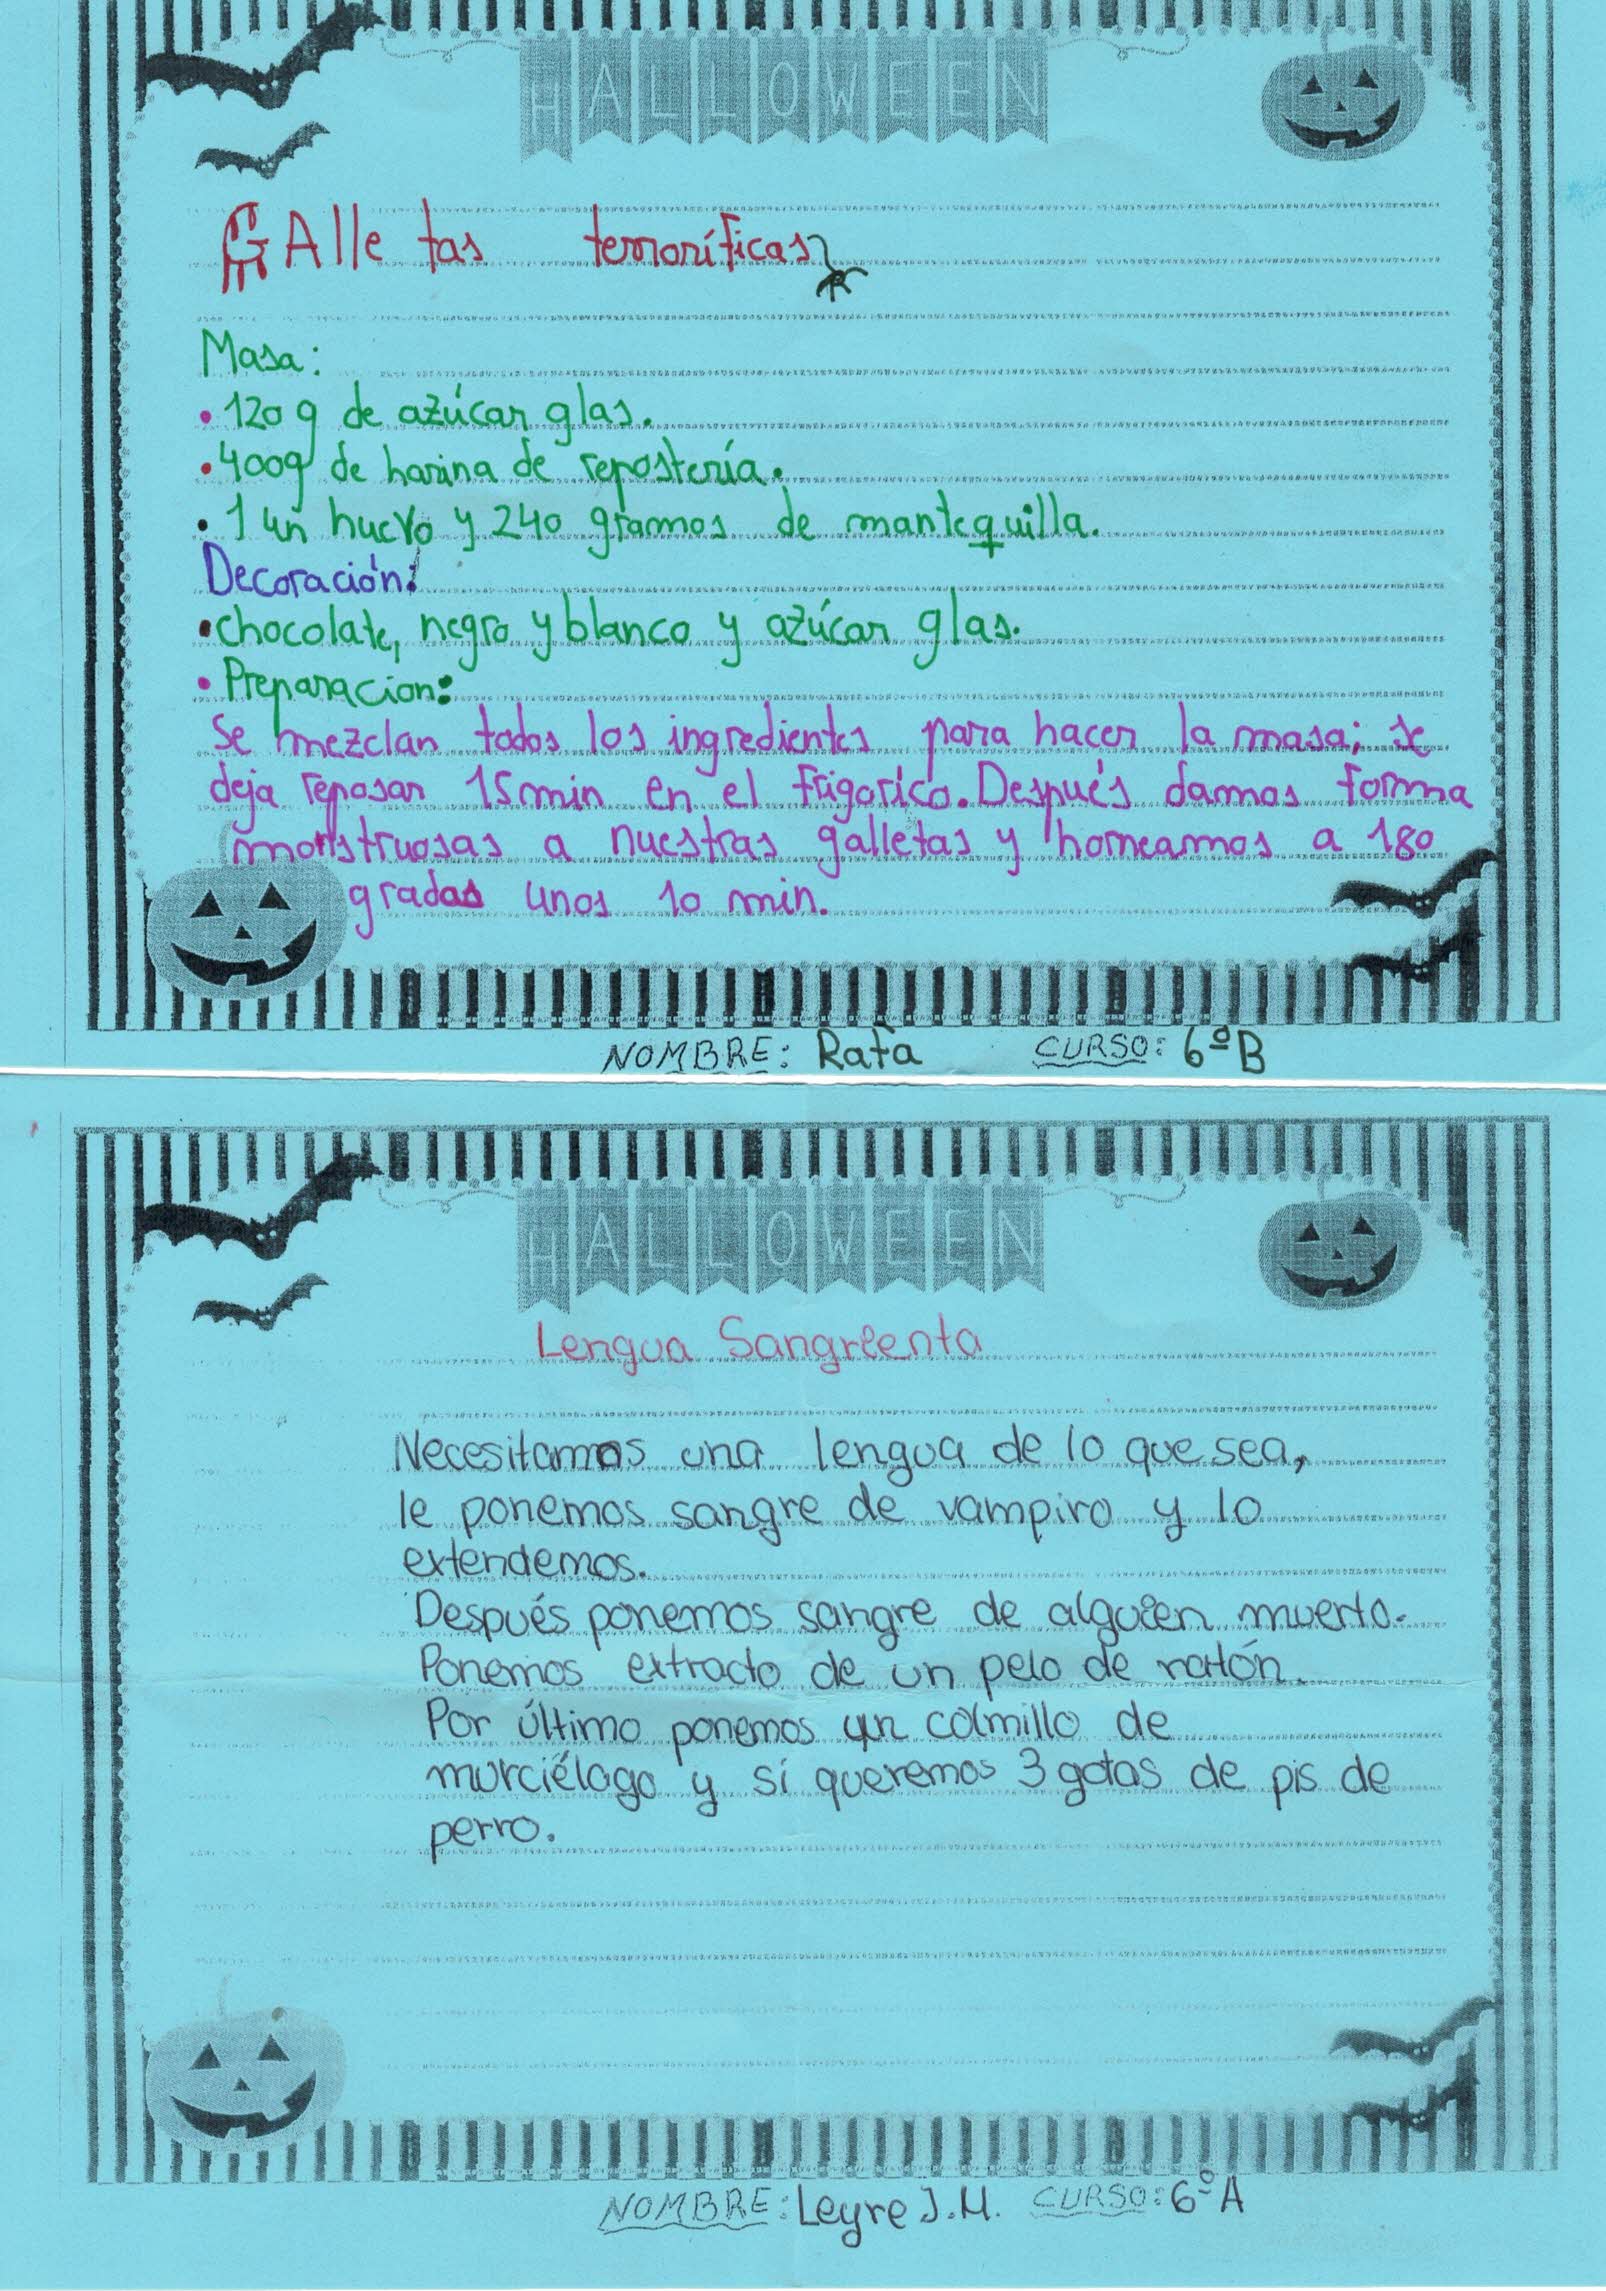 HALLOWEEN
GAlletas terroríficas
Masa:
• 120 g de azúcar glas.
• 400g de harina de repostería.
• 1 un huevo y 240 gramos de mantequilla.
Decoración:
• chocolate, negro y blanco y azúcar glas.
• Preparacion:
Se mezclan todos los ingredientes para hacer la masa; se
deja reposar 15 min en el frigoríco. Después damos forma
monstruosas a nuestras galletas y horneamos a 180
grados unos 10 min.
NOMBRE: Rafa CURSO: 6ºB
HALLOWEEN
Lengua Sangrienta
Necesitamos una lengua de lo que sea,
le ponemos sangre de vampiro y lo
extendemos.
Después ponemos sangre de alguien muerto.
Ponemos extracto de un pelo de ratón.
Por último ponemos un colmillo de
murciélago y si queremos 3 gotas de pis de
perro.
NOMBRE: Leyre J.M. CURSO: 6ºA